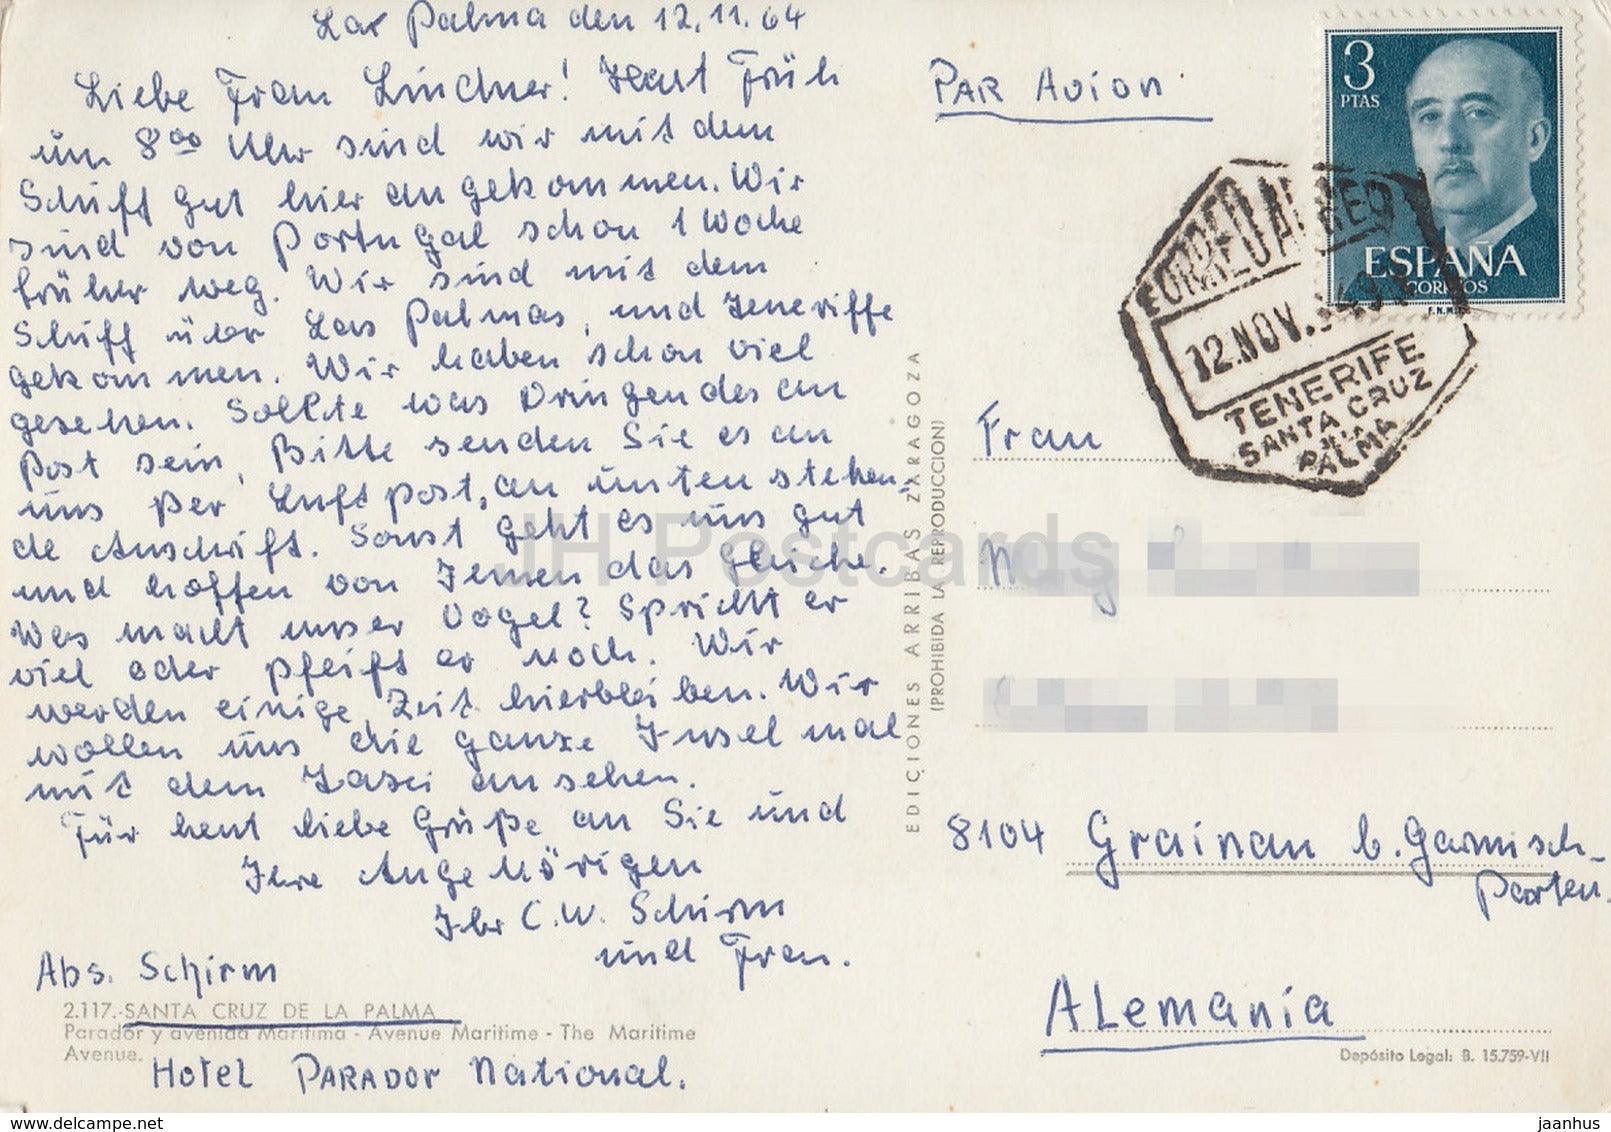 Las Palma den 12.11.64
Liebe Frau Lindner! Heut Früh
um 8⁰⁰ Uhr sind wir mit dem
Schiff gut hier angekommen. Wir
sind von Portugal schon 1 Woche
früher weg. Wir sind mit dem
Schiff über Las Palmas, und Teneriffe
gekommen. Wir haben schon viel
gesehen. Sollte was Dringendes an
Post sein, Bitte senden Sie es an
uns per Luftpost, an untenstehen-
de Anschrift. Sonst geht es uns gut
und hoffen von Ihnen das Gleiche.
Was macht unser Vogel? Spricht er
viel oder pfeift er noch. Wir
werden einige Zeit hierbleiben. Wir
wollen uns die ganze Insel mal
mit dem Taxi ansehen.
Für heut liebe Grüße an Sie und
Ihre Angehörigen
Ihr C.W. Schirm
und Frau.
Abs. Schirm
2.117.-SANTA CRUZ DE LA PALMA
Parador y avenida Marítima - Avenue Maritime - The Maritime
Avenue.
Hotel PARADOR National.
EDICIONES ARRIBAS ZARAGOZA
(PROHIBIDA LA REPRODUCCION)
PAR Avion
3
PTAS
ESPAÑA
CORREOS
F.N.M.T.
CORREO AEREO
12.NOV.
TENERIFE
SANTA CRUZ
DE LA
PALMA
Frau
8104 Grainau b. Garmisch-
Parten.
ALemania
Depósito Legal: B. 15.759-VII
JH Postcards
delcampe.net
jaanhus